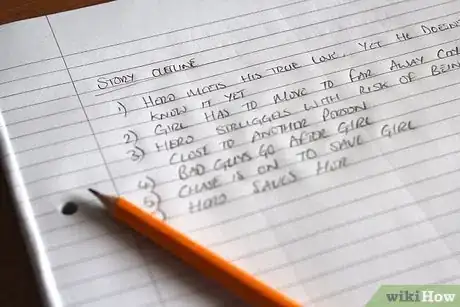 STORY OUTLINE
1) HERO MEETS HIS TRUE LOVE, YET HE DOESN'T
KNOW IT YET
2) GIRL HAS TO MOVE TO FAR AWAY
3) HERO STRUGGLES WITH RISK OF BEING
CLOSE TO ANOTHER PERSON
4) BAD GUYS GO AFTER GIRL
5) CHASE IS ON TO SAVE GIRL
HERO SAVES HER
wikiHow